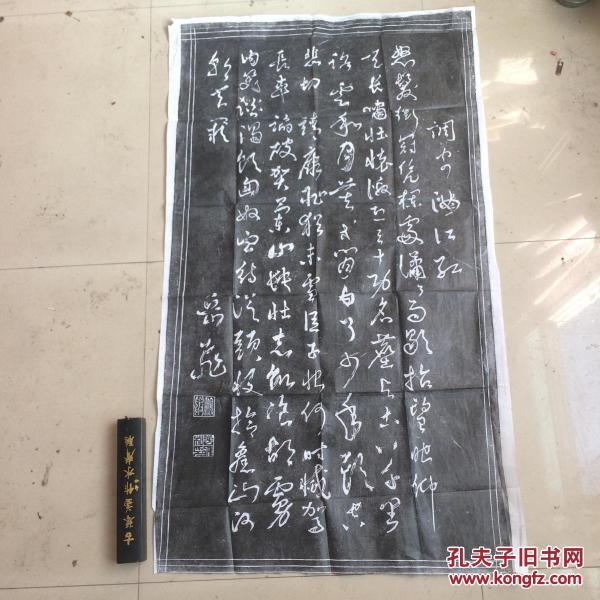 調寄滿江紅
怒髮衝冠凭欄處瀟瀟雨歇抬望眼仰
天長嘯壯懷激烈三十功名塵与土八千里
路雲和月莫等閒白了少年頭空
悲切靖康恥猶未雪臣子恨何時滅駕
長車踏破賀蘭山缺壯志飢飡胡虜
肉笑談渴飲匈奴血待從頭收拾舊山河
朝天闕
岳飛
孔夫子旧书网
www.kongfz.com